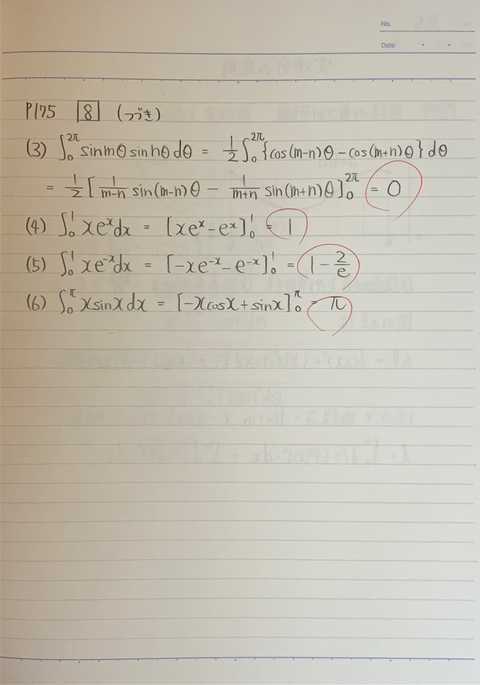 No.
Date
P175 [8] (つづき)
(3) ∫₀^{2π} sin mθ sin nθ dθ = 1/2 ∫₀^{2π} {cos(m-n)θ - cos(m+n)θ} dθ
= 1/2 [1/(m-n) sin(m-n)θ - 1/(m+n) sin(m+n)θ]₀^{2π} = 0
(4) ∫₀^1 xe^x dx = [xe^x - e^x]₀^1 = 1
(5) ∫₀^1 xe^{-x} dx = [-xe^{-x} - e^{-x}]₀^1 = 1 - 2/e
(6) ∫₀^π x sin x dx = [-x cos x + sin x]₀^π = π